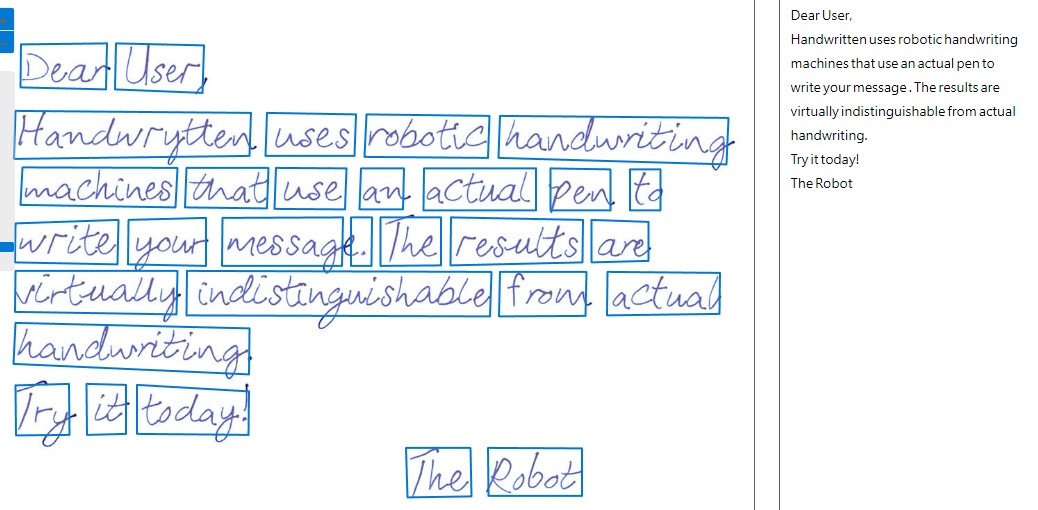 Dear User,
Handwrytten uses robotic handwriting
machines that use an actual pen to
write your message. The results are
virtually indistinguishable from actual
handwriting.
Try it today!
The Robot
Dear User,
Handwritten uses robotic handwriting
machines that use an actual pen to
write your message. The results are
virtually indistinguishable from actual
handwriting.
Try it today!
The Robot